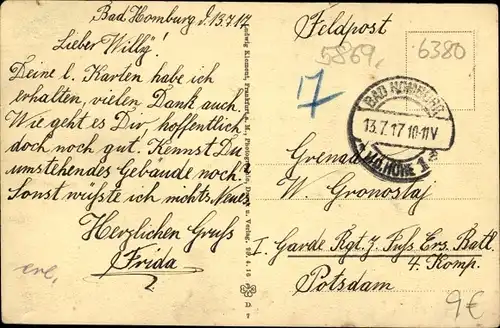 Bad Homburg d. 13.7.17.
Lieber Willy!
Deine l. Karten habe ich
erhalten, vielen Dank auch.
Wie geht es Dir, hoffentlich
doch noch gut. Kennst Du
umstehendes Gebäude noch?
Sonst wüßte ich nichts Neues.
Herzlichen Gruss
Frida
Ludwig Klement, Frankfurt a. M., Photographie, Druck u. Verlag.
D.
7
Feldpost
5869,
6380
17
BAD HOMBURG
13.7.17 10-11V
1
Grenad.
W. Gronostaj
I. Garde Rgt. z. Fuss Ers. Batl.
4. Komp.
Potsdam
9€